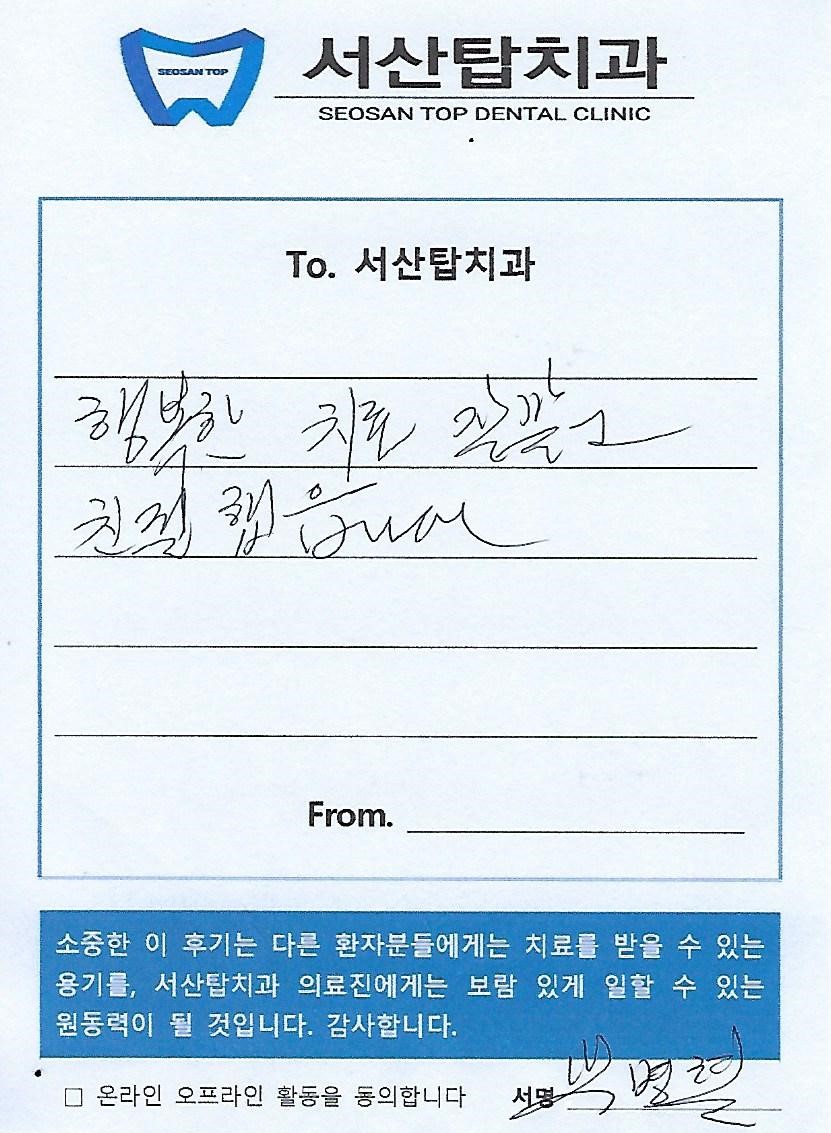 SEOSAN TOP
서산탑치과
SEOSAN TOP DENTAL CLINIC
To. 서산탑치과
행복한 치료
친절 햅읍니다
From.
소중한 이 후기는 다른 환자분들에게는 치료를 받을 수 있는
용기를, 서산탑치과 의료진에게는 보람 있게 일할 수 있는
원동력이 될 것입니다. 감사합니다.
□ 온라인 오프라인 활동을 동의합니다 서명